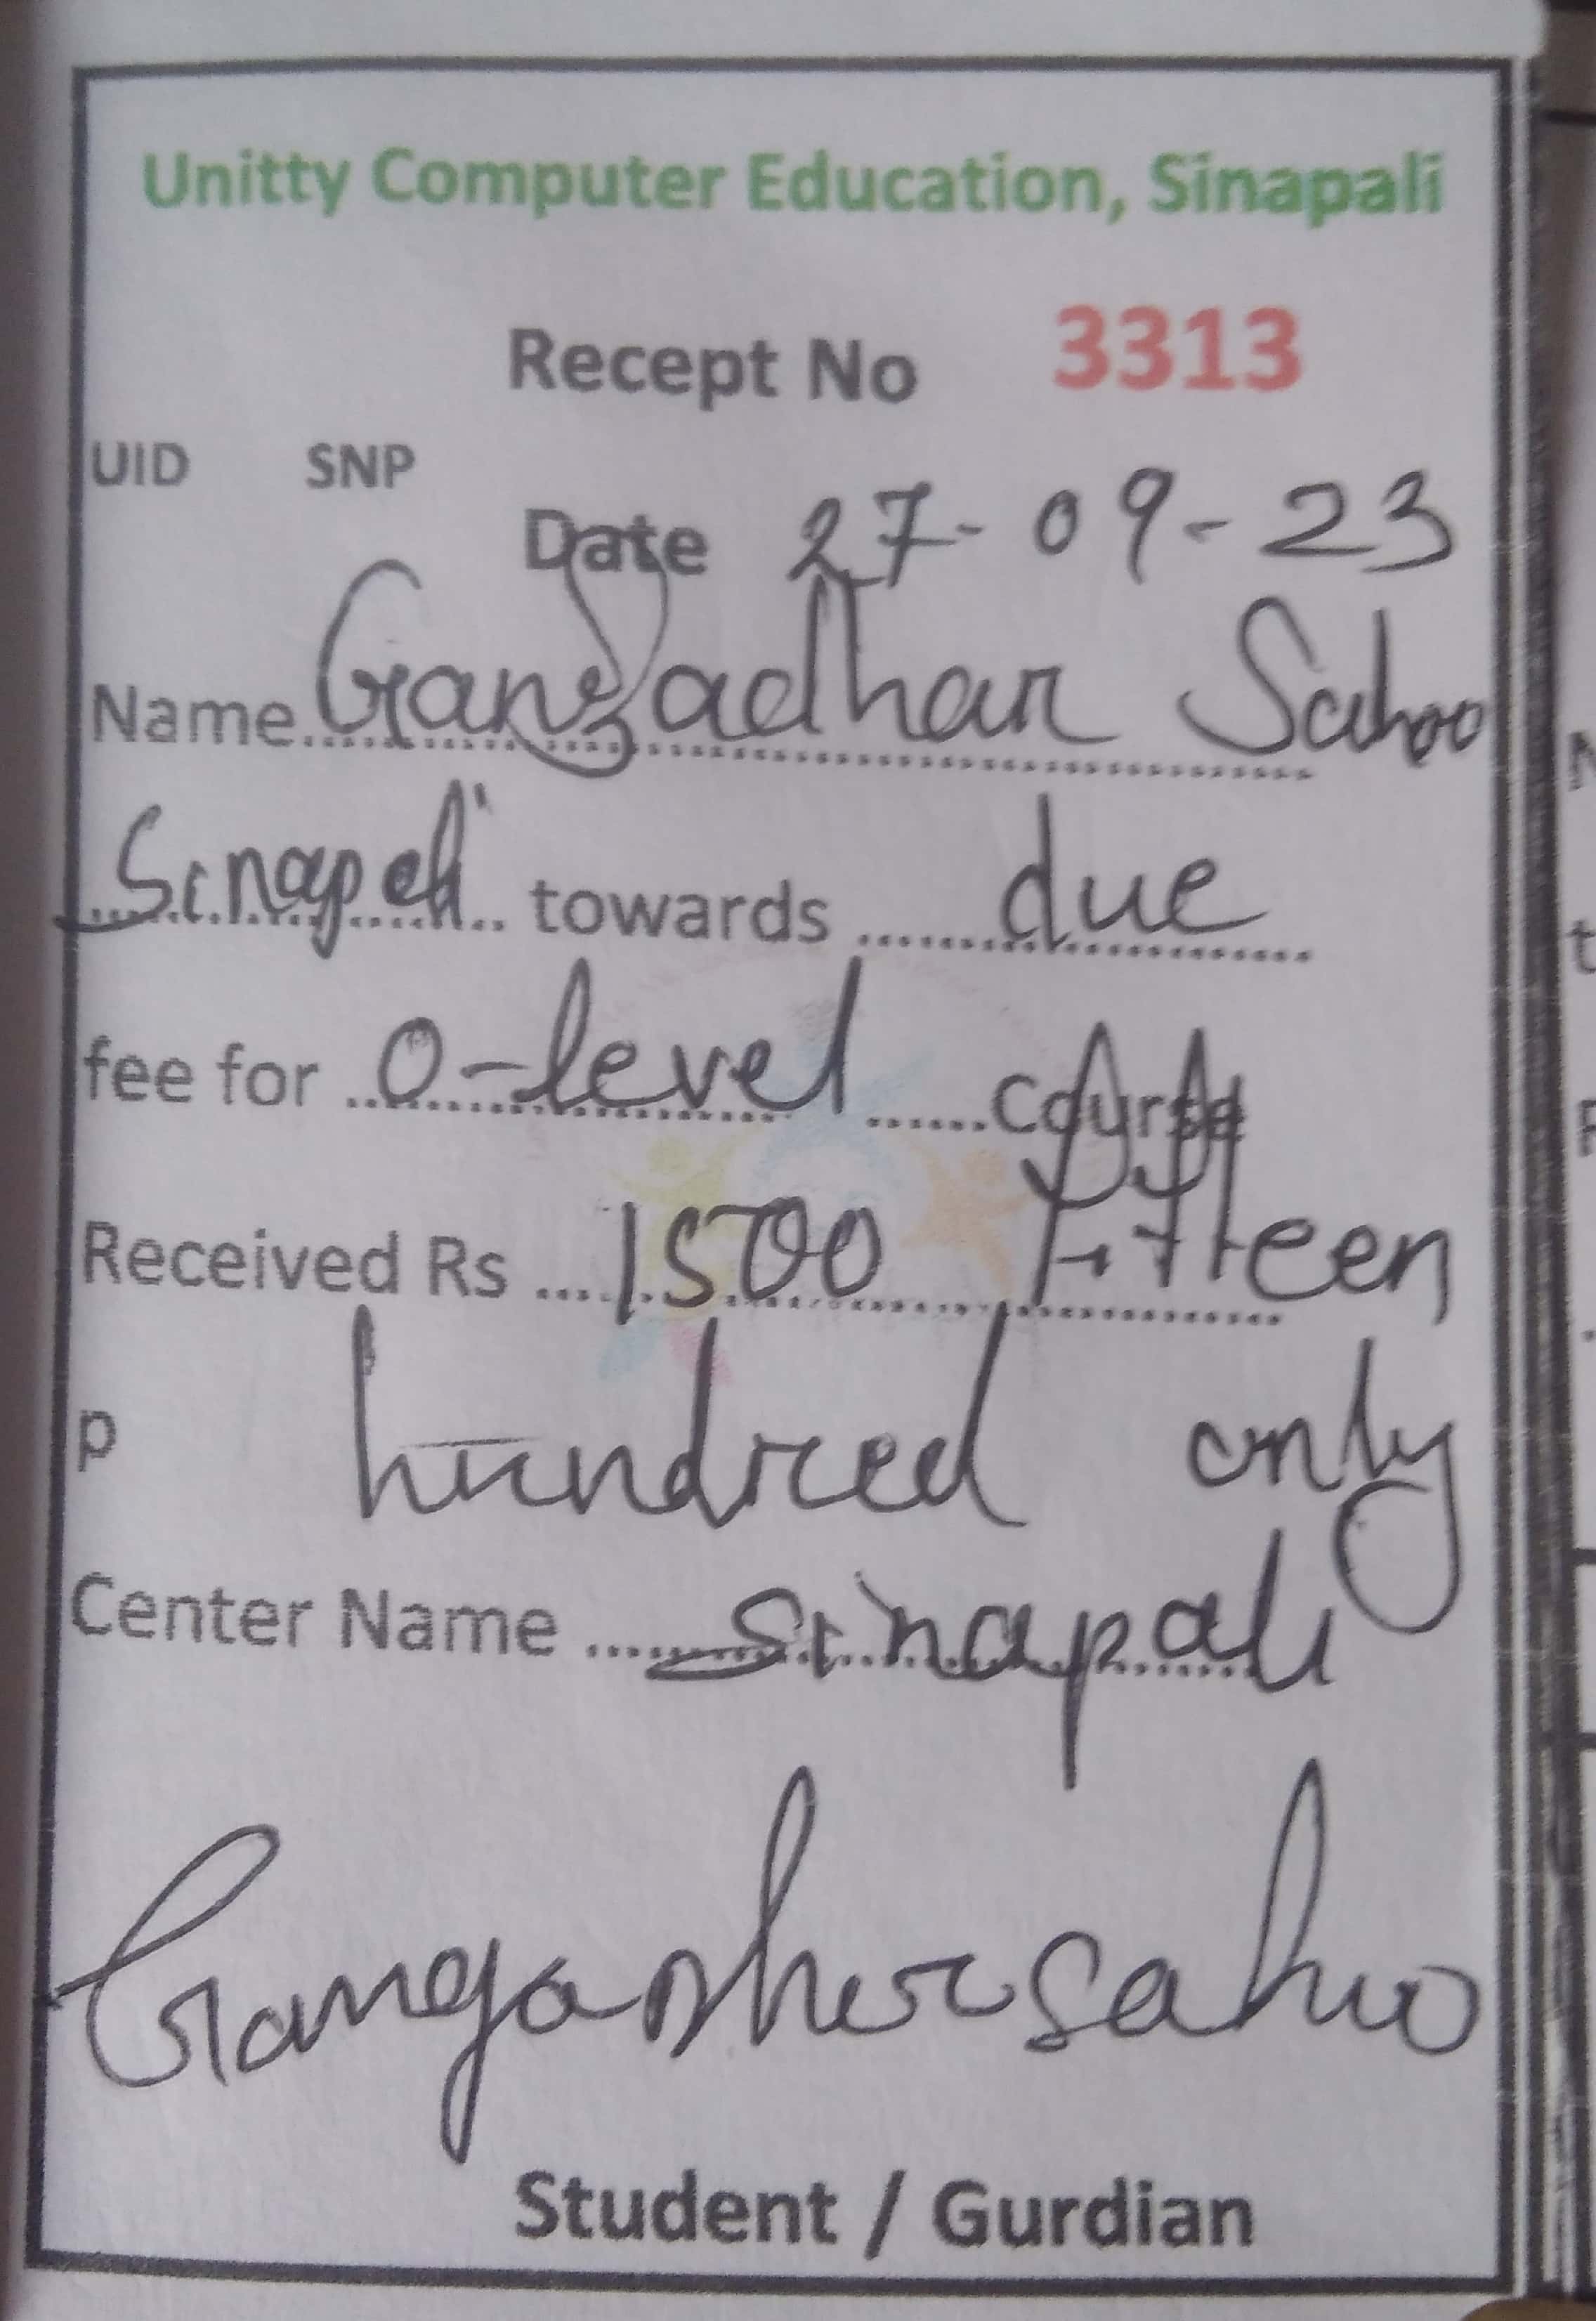 Unitty Computer Education, Sinapali
Recept No 3313
UID SNP
Date 27-09-23
Name Gangadhar Sahoo
Sinapali towards due
fee for O-level Course
Received Rs 1500 Fifteen
p hundred only
Center Name Sinapali
Gangadhar Sahoo
Student / Gurdian